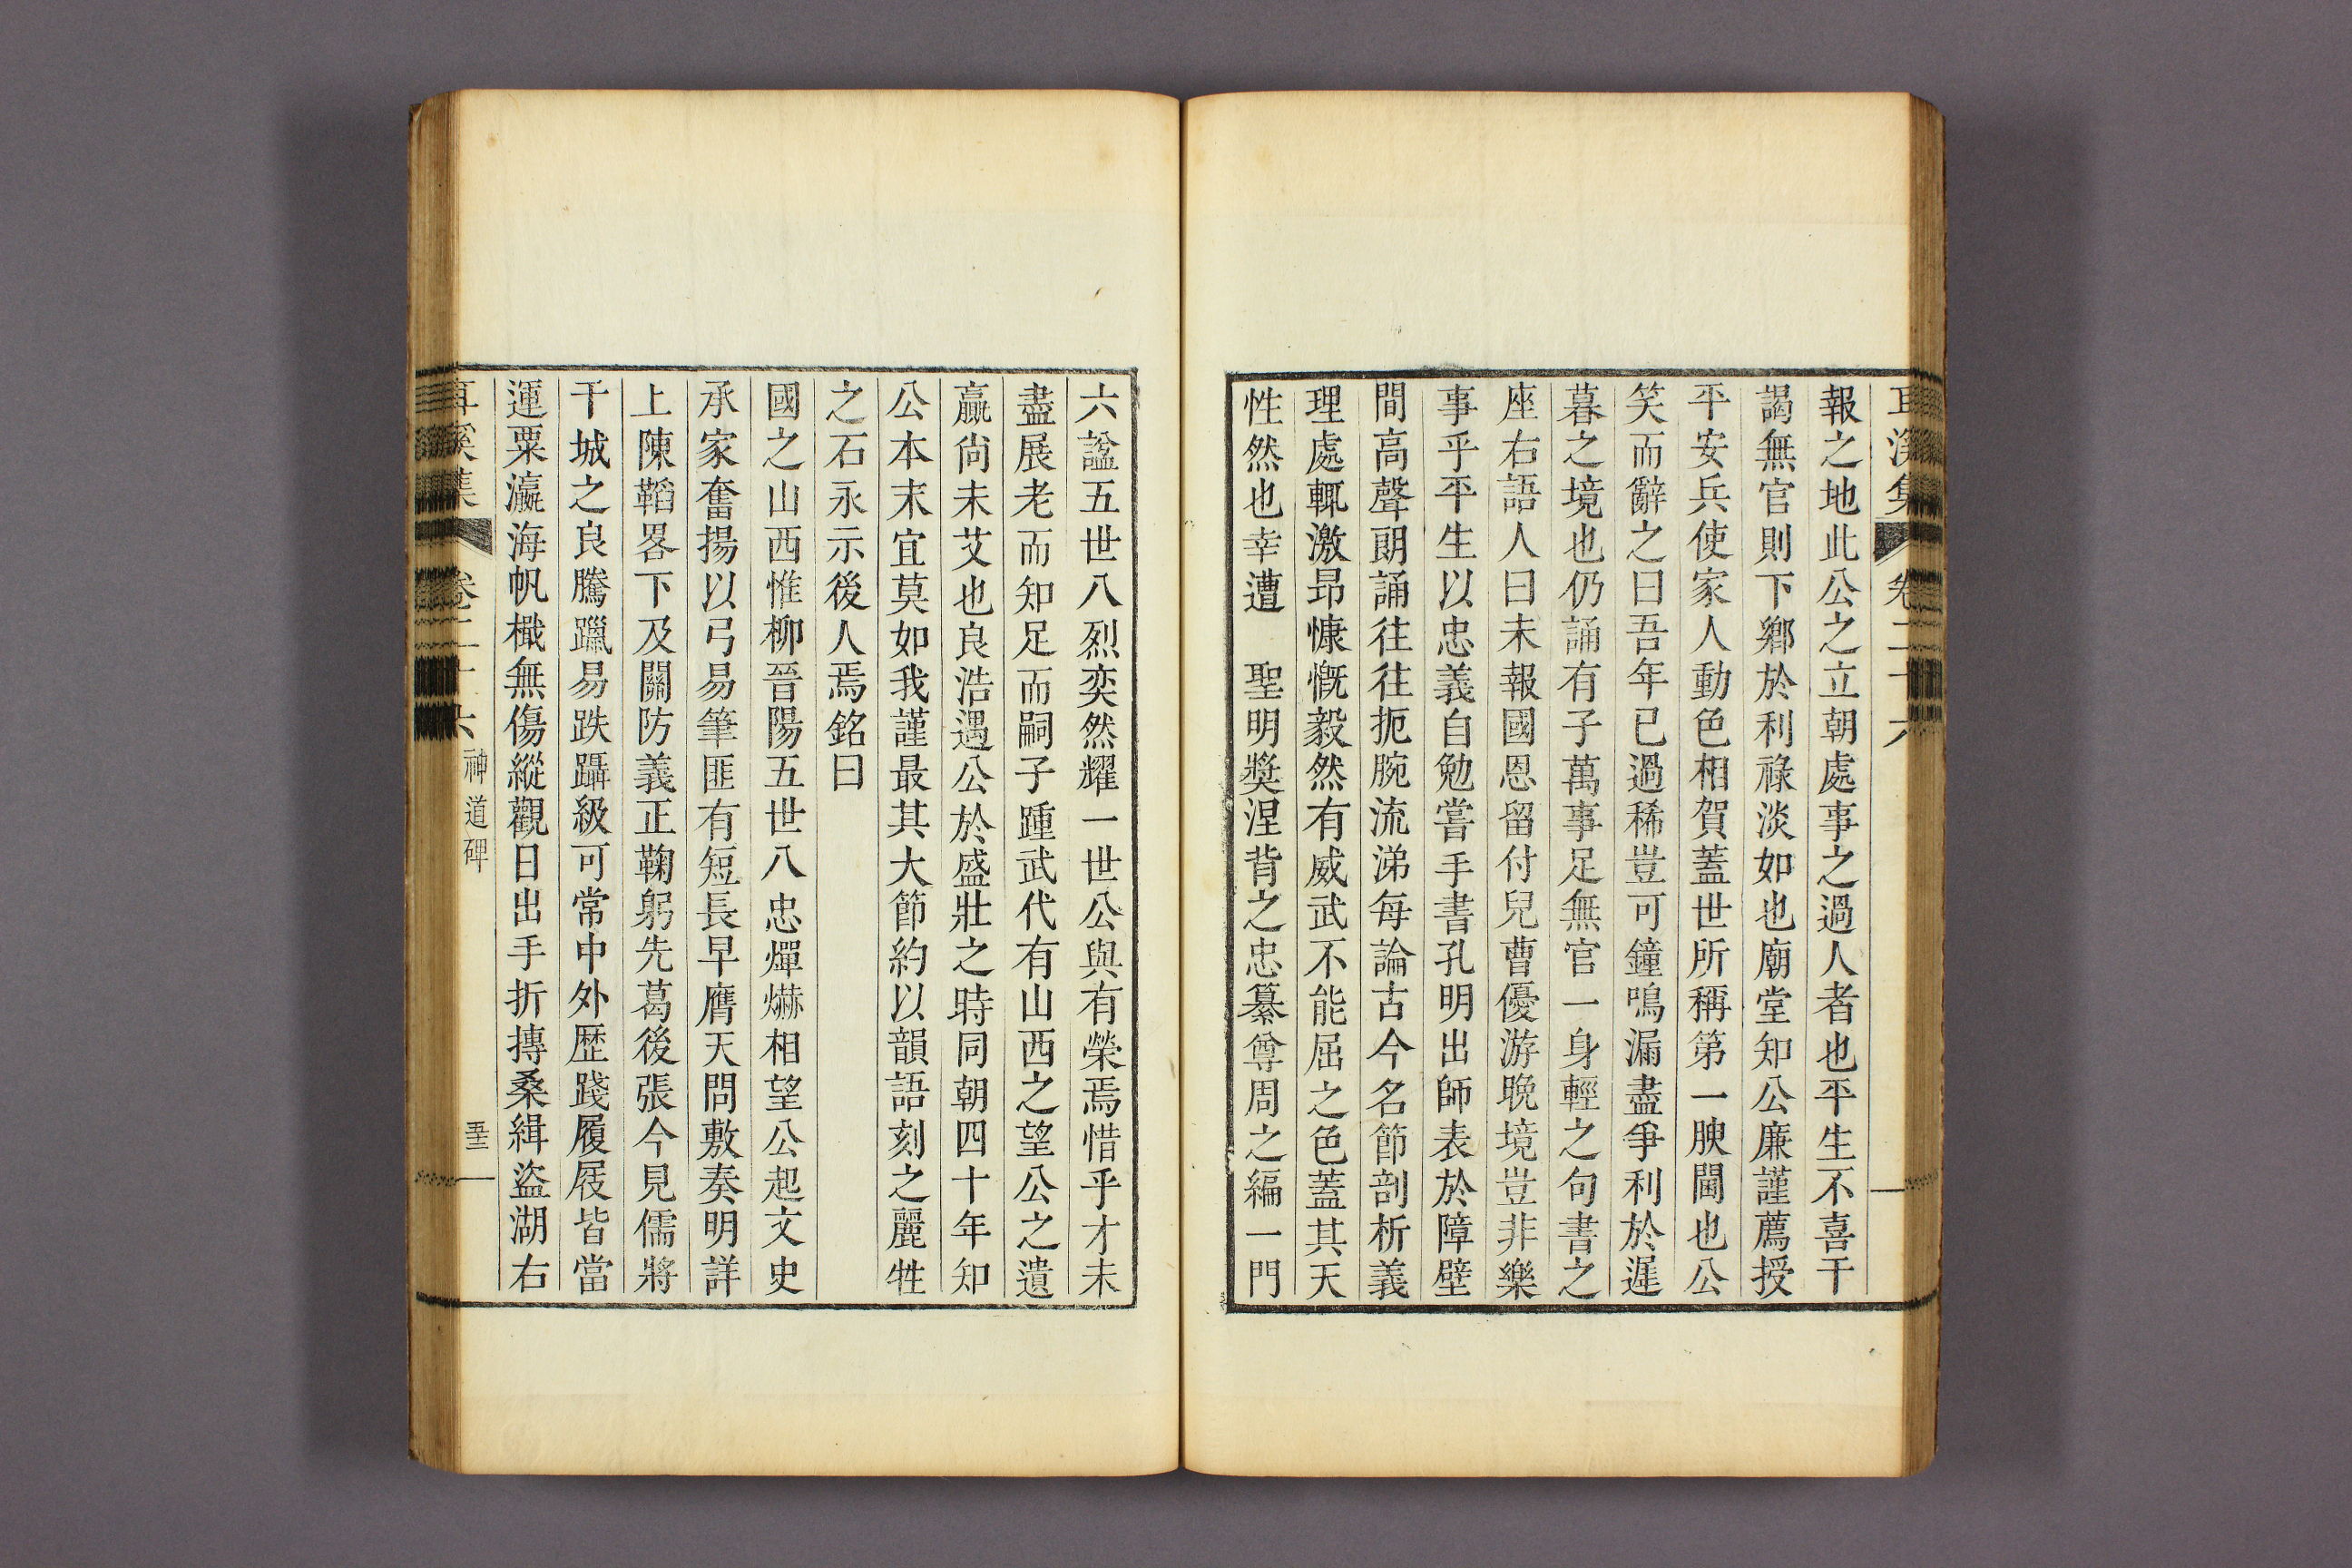 耳溪集 卷二十六
報之地此公之立朝處事之過人者也平生不喜干
謁無官則下鄉於利祿淡如也廟堂知公廉謹薦授
平安兵使家人動色相賀蓋世所稱第一腴閫也公
笑而辭之曰吾年已過稀豈可鐘鳴漏盡爭利於遲
暮之境也仍誦有子萬事足無官一身輕之句書之
座右語人曰未報國恩留付兒曹優游晚境豈非樂
事乎平生以忠義自勉嘗手書孔明出師表於障壁
間高聲朗誦往往扼腕流涕每論古今名節剖析義
理處輒激昂慷慨毅然有威武不能屈之色蓋其天
性然也幸遭 聖明獎涅背之忠纂尊周之編一門
六諡五世八烈奕然耀一世公與有榮焉惜乎才未
盡展老而知足而嗣子踵武代有山西之望公之遺
贏尙未艾也良浩遇公於盛壯之時同朝四十年知
公本末宜莫如我謹最其大節約以韻語刻之麗牲
之石永示後人焉銘曰
國之山西惟柳晉陽五世八忠燀爀相望公起文史
承家奮揚以弓易筆匪有短長早膺天問敷奏明詳
上陳鞱畧下及關防義正鞠躬先葛後張今見儒將
干城之良騰躐易跌躡級可常中外歷踐履屐皆當
運粟瀛海帆檝無傷縱觀日出手折摶桑緝盜湖右
耳溪集 卷二十六 神道碑 五十三